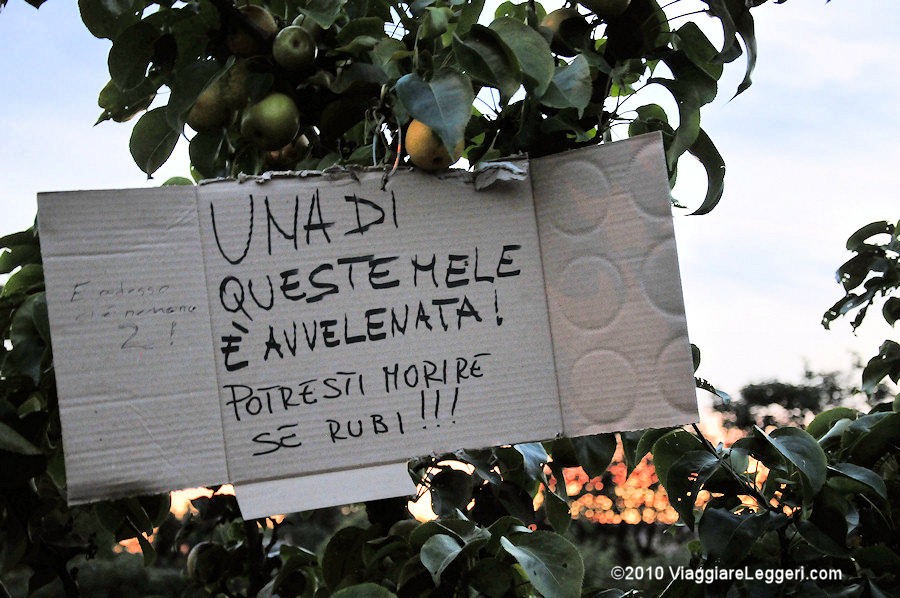 UNA DI
QUESTE MELE
È AVVELENATA!
POTRESTI MORIRE
SE RUBI!!!
E adesso
ce ne
2!
©2010 ViaggiareLeggeri.com